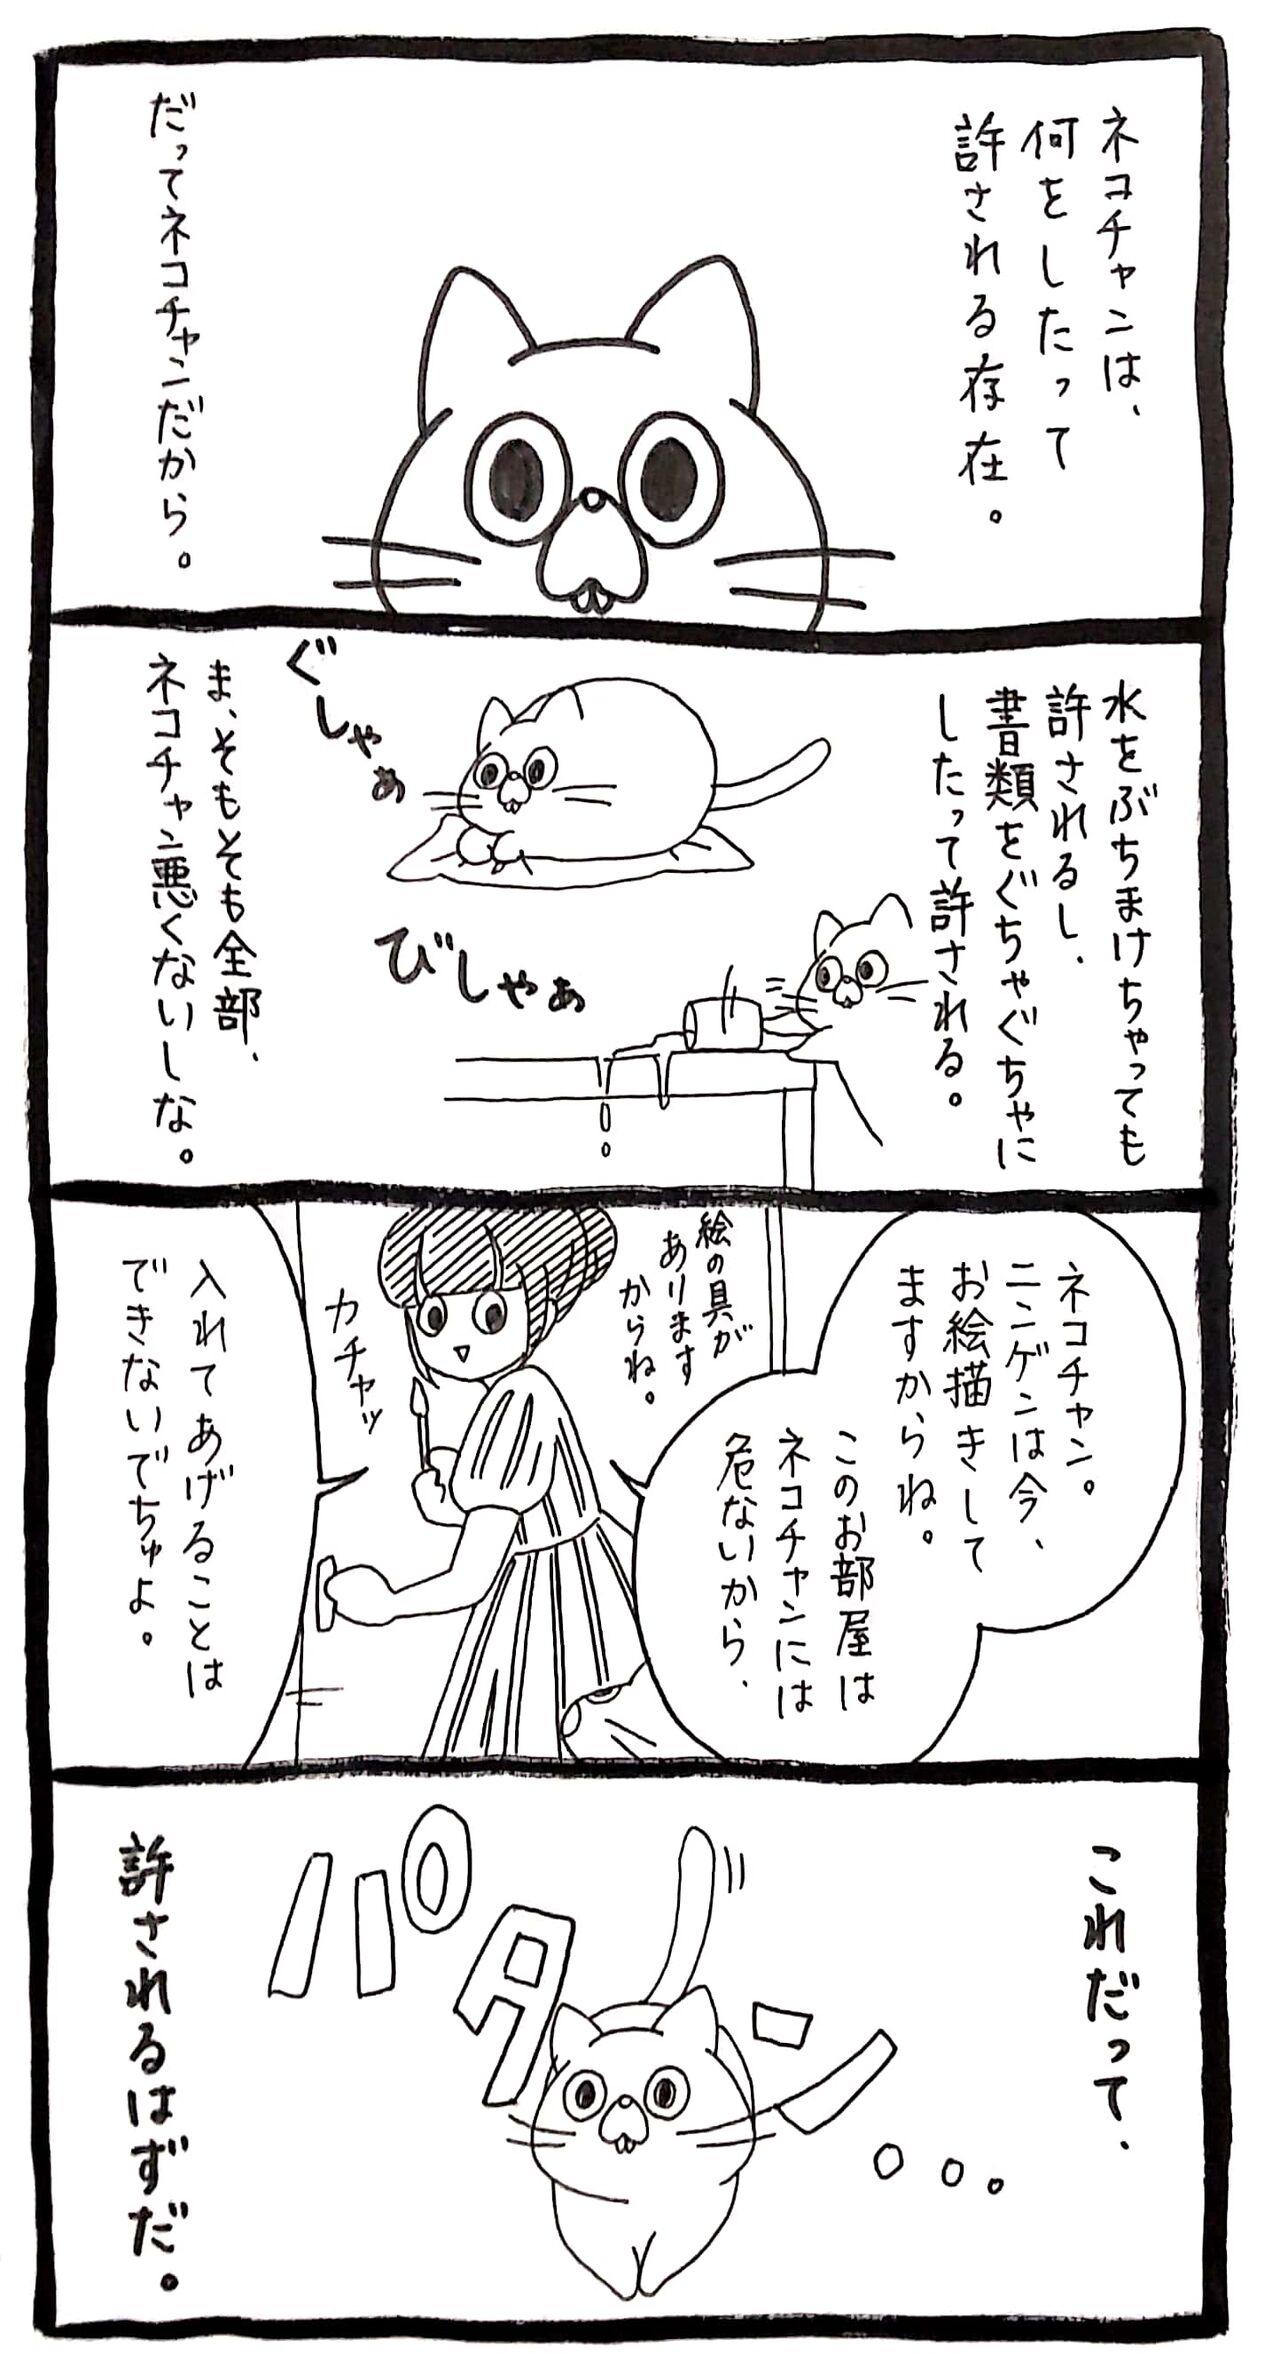 ネコチャンは、
何をしたって
許される存在。
だってネコチャンだから。
水をぶちまけちゃっても
許されるし、
書類をぐちゃぐちゃに
したって許される。
ぐしゃあ
びしゃあ
ま、そもそも全部、
ネコチャン悪くないしな。
ネコチャン。
ニンゲンは今、
お絵描きして
ますからね。
このお部屋は
ネコチャンには
危ないから、
絵の具が
あります
からね。
カチャッ
入れてあげることは
できないでちゅよ。
これだって、
パタン。。。
許されるはずだ。